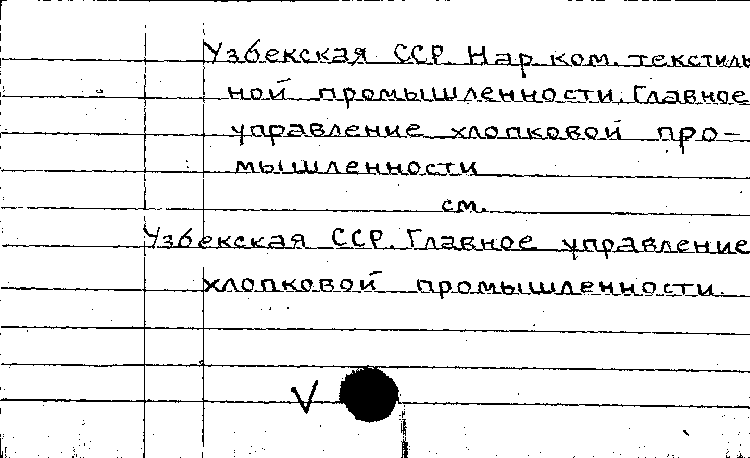 Узбекская ССР. Нар ком. текстиль
ной промышленности. Главное
управление хлопковой про-
мышленности
см.
Узбекская ССР. Главное управление
хлопковой промышленности.
V